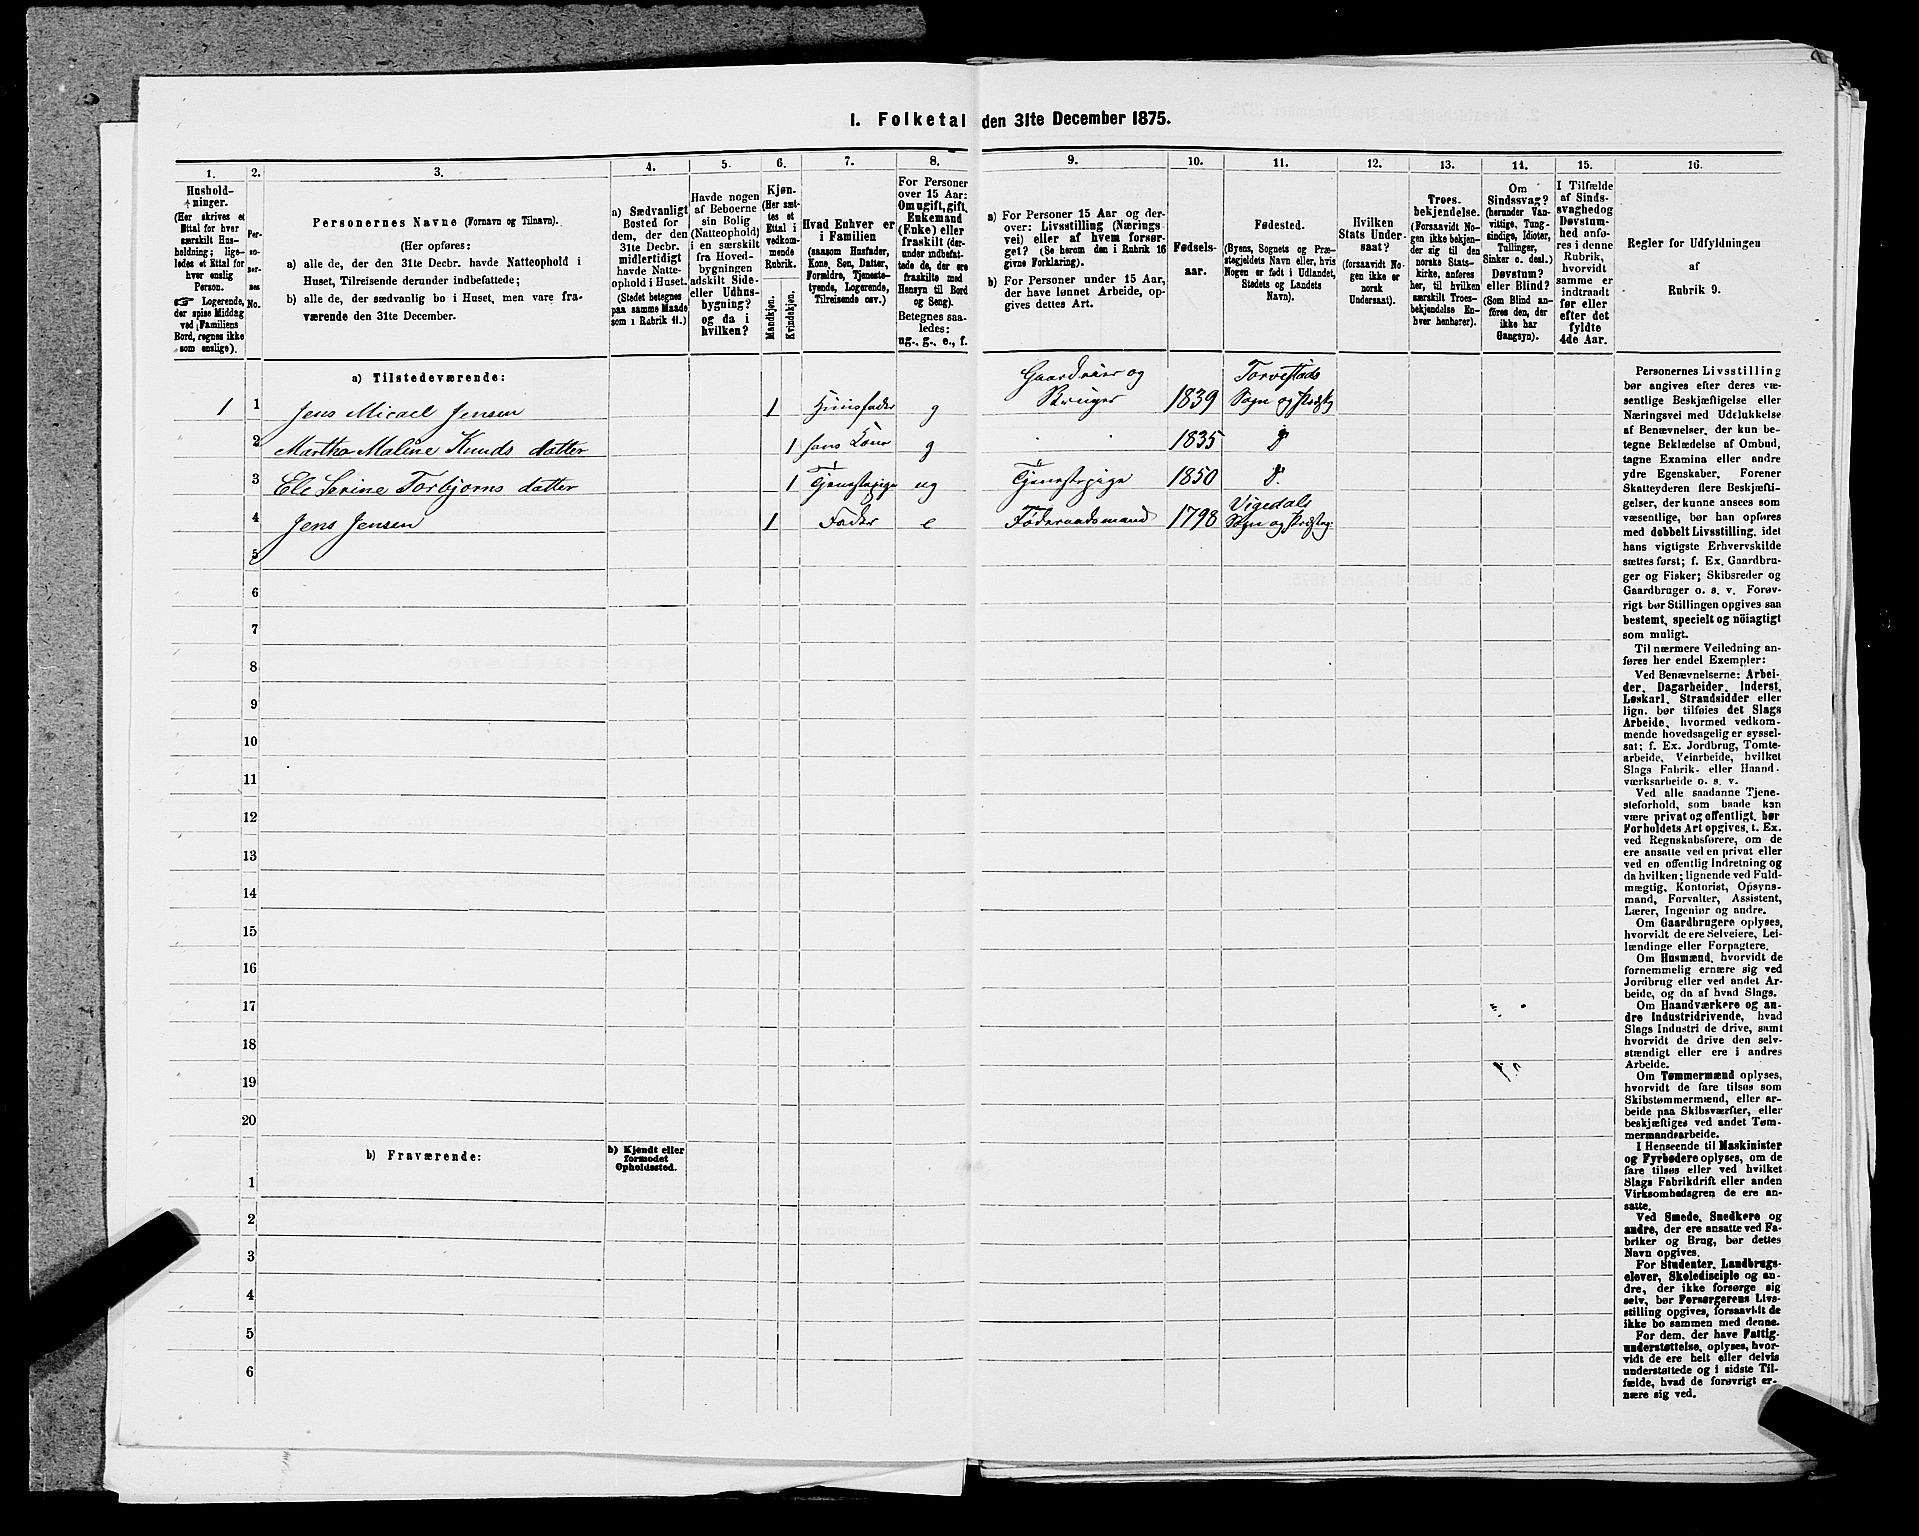 1. Folketal den 31te December 1875.
1.
2.
3.
4.
5.
6.
7.
8.
9.
10.
11.
12.
13.
14.
15.
16.
Hushold-
ninger.
(Her skrives et
Ettal for hver
særskilt Hus-
holdning; lige-
ledes et Ettal for
hver enslig
Person.
Logerende,
der spise Middag
ved Familiens
Bord, regnes ikke
som enslige).
Per-
so-
ner-
nes
No.
Personernes Navne (Fornavn og Tilnavn).
(Her opføres:
a) alle de, der den 31te Decbr. havde Natteophold i
Huset, Tilreisende derunder indbefattede;
b) alle de, der sædvanlig bo i Huset, men vare fra-
værende den 31te December.
a) Sædvanligt
Bosted for
dem, der den
31te Decbr.
midlertidigt
havde Natte-
ophold i Huset.
(Stedet betegnes
paa samme Maade
som i Rubrik 11.)
Havde nogen
af Beboerne
sin Bolig
(Natteophold)
i en særskilt
fra Hoved-
bygningen
adskilt Side-
eller Udhus-
bygning?
og da i
hvilken?
Kjøn.
(Her sæt-
tes et
Ettal i
vedkom-
mende
Rubrik.
Mandkjøn.
Kvindekjøn.
Hvad Enhver er
i Familien
(saasom Husfader,
Kone, Søn, Datter,
Forældre, Tjeneste-
tyende, Logerende,
Tilreisende osv.)
For Personer
over 15 Aar:
Om ugift, gift,
Enkemand
(Enke) eller
fraskilt (der-
under indbefat-
tede de, der ere
fraskilte med
Hensyn til Bord
og Seng).
Betegnes saa-
ledes:
ug., g., e., f.
a) For Personer 15 Aar og der-
over: Livsstilling (Nærings-
vei) eller af hvem forsør-
get? (Se herom den i Rubrik 16
givne Forklaring).
b) For Personer under 15 Aar,
der have lønnet Arbeide, op-
gives dettes Art.
Fødsels-
aar.
Fødested.
(Byens, Sognets og Præ-
stegjeldets Navn eller, hvis
Nogen er født i Udlandet,
Stedets og Landets
Navn).
Hvilken
Stats Under-
saat?
(forsaavidt No-
gen ikke er
norsk
Undersaat).
Troes-
bekjendelse.
(Forsaavidt No-
gen ikke bekjen-
der sig til den
norske Stats-
kirke, anføres
her, til hvilken
særskilt Troes-
bekjendelse En-
hver henhører).
Om
Sindssvag?
(herunder Van-
vittige, Tung-
sindige, Idioter,
Tullinger,
Sinker o. desl.)
Døvstum?
eller Blind?
(Som Blind an-
føres den, der
ikke har
Gangsyn).
I Tilfælde
af Sinds-
svaghed og
Døvstum-
hed anfø-
res i denne
Rubrik,
hvorvidt
samme er
indtraadt
før eller
efter det
fyldte
4de Aar.
Regler for Udfyldningen
af
Rubrik 9.
a) Tilstedeværende:
1 1 Jens Micael Jensen 1 Huusfader g Gaardeier og Bruger 1839 Torvestads Sogn og Præstg
2 Martha Maline Knuds datter 1 hans Kone g 1835 D
3 Ele Serine Torbjørns datter 1 Tjenestepige ug Tjenestepige 1850 D.
4 Jens Jensen 1 Fader e Føderaadsmand 1798 Vigedals Sogn og Præstg:
5
6
7
8
9
10
11
12
13
14
15
16
17
18
19
20
b) Fraværende:
b) Kjendt eller
formodet
Opholdssted.
1
2
3
4
5
6
Personernes Livsstilling
bør angives efter deres væ-
sentlige Beskjæftigelse eller
Næringsvei med Udelukkelse
af Benævnelser, der kun be-
tegne Beklædelse af Ombud,
tagne Examina eller andre
ydre Egenskaber. Forener
Skatteyderen flere Beskjæfti-
gelser, der kunne ansees som
væsentlige, bør han opføres
med dobbelt Livsstilling, idet
hans vigtigste Erhvervskilde
sættes først; f. Ex. Gaardbru-
ger og Fisker; Skibsreder og
Gaardbruger o. s. v. Forøv-
rigt bør Stillingen opgives saa
bestemt, specielt og nöiagtigt
som muligt.
Til nærmere Veiledning an-
føres her endel Exempler:
Ved Benævnelserne: Arbei-
der, Dagarbeider, Inderst,
Løskarl, Strandsidder eller
lign. bør tilføies det Slags
Arbeide, hvormed vedkom-
mende hovedsagelig er syssel-
sat; f. Ex. Jordbrug, Tomte-
arbeide, Veinrbeide, hvilket
Slags Fabrik- eller Haand-
værksarbeide o. s. v.
Ved alle saadanne Tjene-
steforhold, som baade kan
være privat og offentligt, bør
Forholdets Art opgives, t. Ex.
ved Regnskabsførere, om de
ere ansatte ved en privat eller
ved en offentlig Indretning og
da hvilken; lignende ved Fuld-
mægtig, Kontorist, Opsyns-
mand, Forvalter, Assistent,
Lærer, Ingeniør og andre.
Om Gaardbrugere oplyses,
hvorvidt de ere Selveiere, Lei-
lændinge eller Forpagtere.
Om Husmænd, hvorvidt de
fornemmelig ernære sig ved
Jordbrug eller ved andet Ar-
beide, og da af hvad Slags.
Om Haandværkere og an-
dre Industridrivende, hvad
Slags Industri de drive, samt
hvorvidt de drive den selv-
stændigt eller ere i andres
Arbeide.
Om Tømmermænd oplyses,
hvorvidt de fare tilsøs som
Skibstømmermænd, eller ar-
beide paa Skibsværfter, eller
beskjæftiges ved andet Tøm-
mermandsarbeide.
I Henseende til Maskinister
og Fyrbødere oplyses, om de
fare tilsøs eller ved hvilket
Slags Fabrikdrift eller anden
Virksomhedsgren de ere an-
satte.
Ved Smede, Snedkere og
andre, der ere ansatte ved Fa-
briker og Brug, bør dettes
Navn opgives.
For Studenter, Landbrugs-
elever, Skoledisciple og an-
dre, der ikke forsørge sig
selv, bør Forsørgerens Livs-
stilling opgives, forsaavidt de
ikke bo sammen med denne.
For dem, der have Fattig-
understøttelse, oplyses, hvor-
vidt de ere helt eller delvis
understøttede og i sidste Til-
fælde, hvad de forøvrigt er-
nære sig ved.